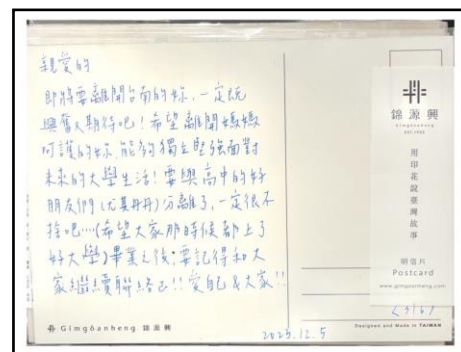 親愛的
即將要離開台南的妳，一定既
興奮又期待吧！希望離開媽媽
呵護的妳，能夠獨立堅強面對
未來的大學生活！要與高中的好
朋友們（尤其丹丹）分離了，一定很不
捨吧…（希望大家那時候都上了
好大學）畢業之後，要記得和大
家繼續聯絡！！愛自己&大家！！
2023.12.5
錦源興
Gimgoanheng
EST.1923
用印花說臺灣故事
明信片
Postcard
www.gimgoanheng.com
Gimgoanheng 錦源興
Designed and Made in TAIWAN